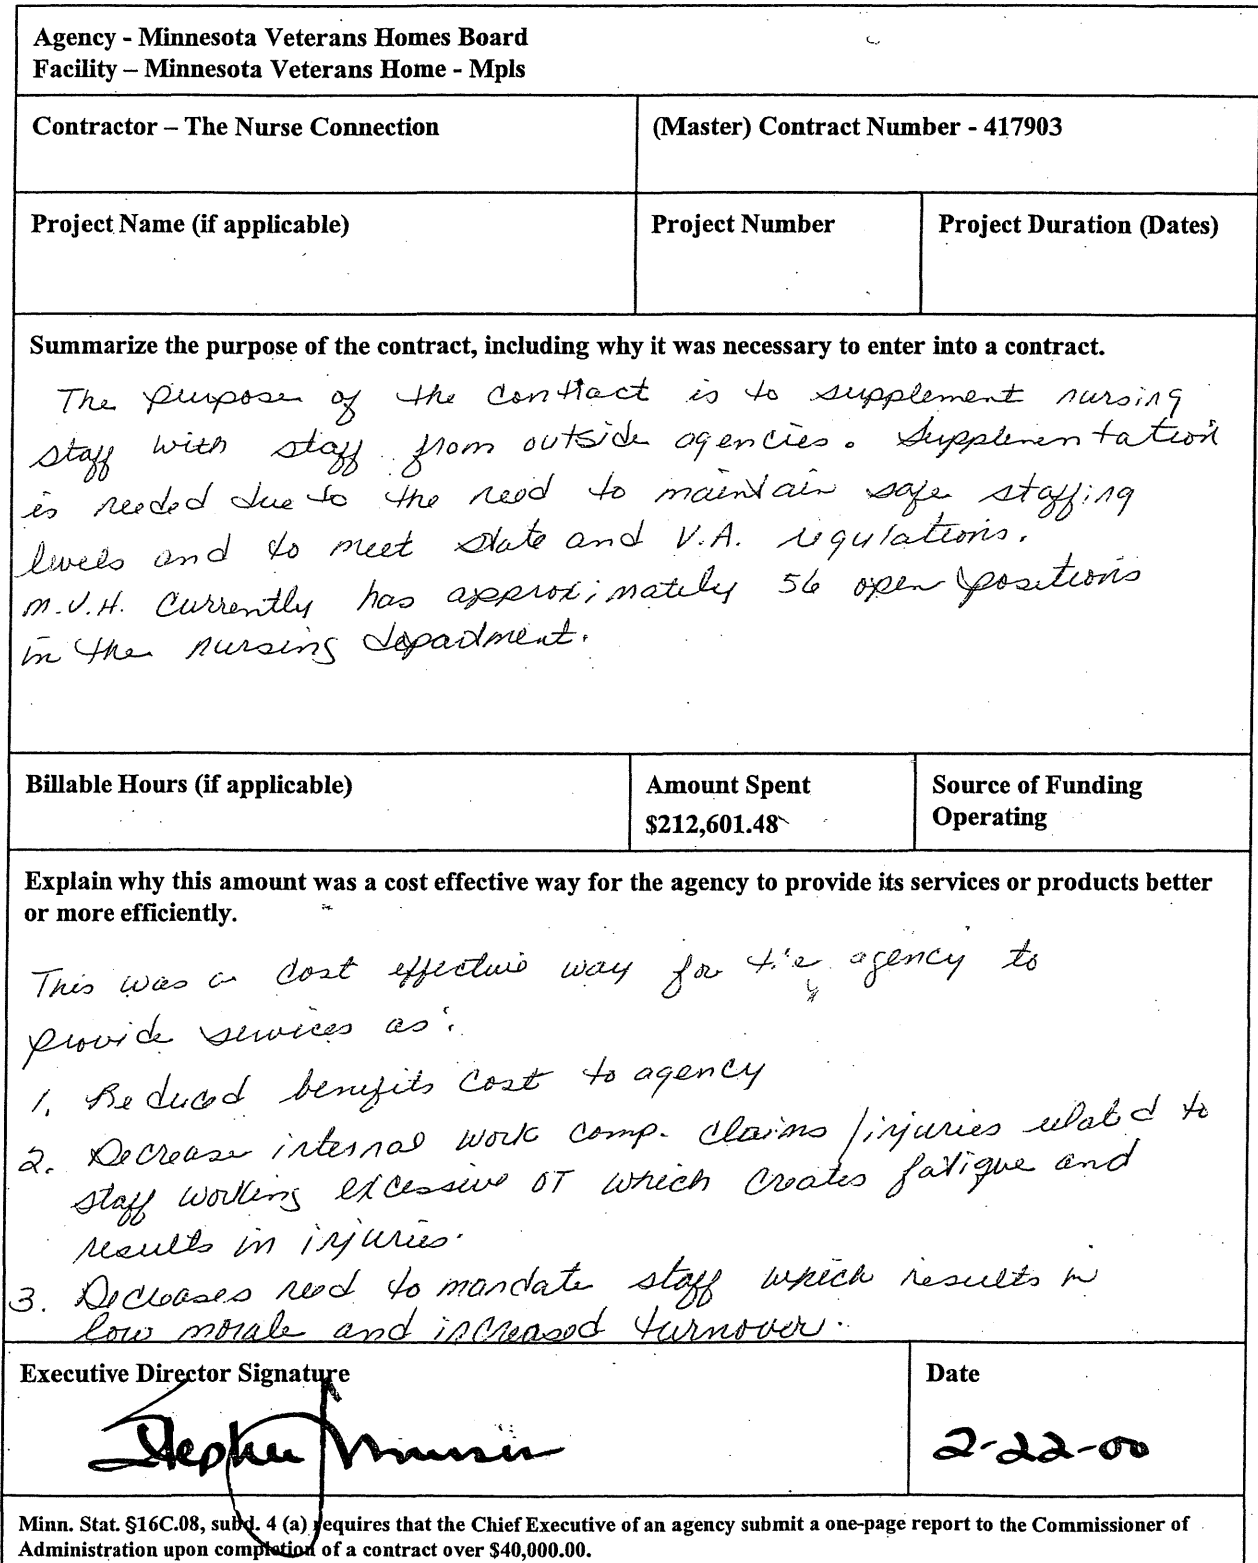 Agency - Minnesota Veterans Homes Board
Facility – Minnesota Veterans Home - Mpls
Contractor – The Nurse Connection
(Master) Contract Number - 417903
Project Name (if applicable)
Project Number
Project Duration (Dates)
Summarize the purpose of the contract, including why it was necessary to enter into a contract.
The purpose of the contract is to supplement nursing
staff with staff from outside agencies. Supplementation
is needed due to the need to maintain safe staffing
levels and to meet state and V.A. regulations.
M.V.H. currently has approximately 56 open positions
in the nursing department.
Billable Hours (if applicable)
Amount Spent
$212,601.48
Source of Funding
Operating
Explain why this amount was a cost effective way for the agency to provide its services or products better
or more efficiently.
This was a cost effective way for the agency to
provide services as:
1. Reduced benefits cost to agency
2. Decrease internal work comp. claims/injuries related to
staff working excessive OT which creates fatigue and
results in injuries.
3. Decreases need to mandate staff which results in
low morale and increased turnover.
Executive Director Signature
Date
Stephen
2-22-00
Minn. Stat. §16C.08, subd. 4 (a) requires that the Chief Executive of an agency submit a one-page report to the Commissioner of
Administration upon completion of a contract over $40,000.00.